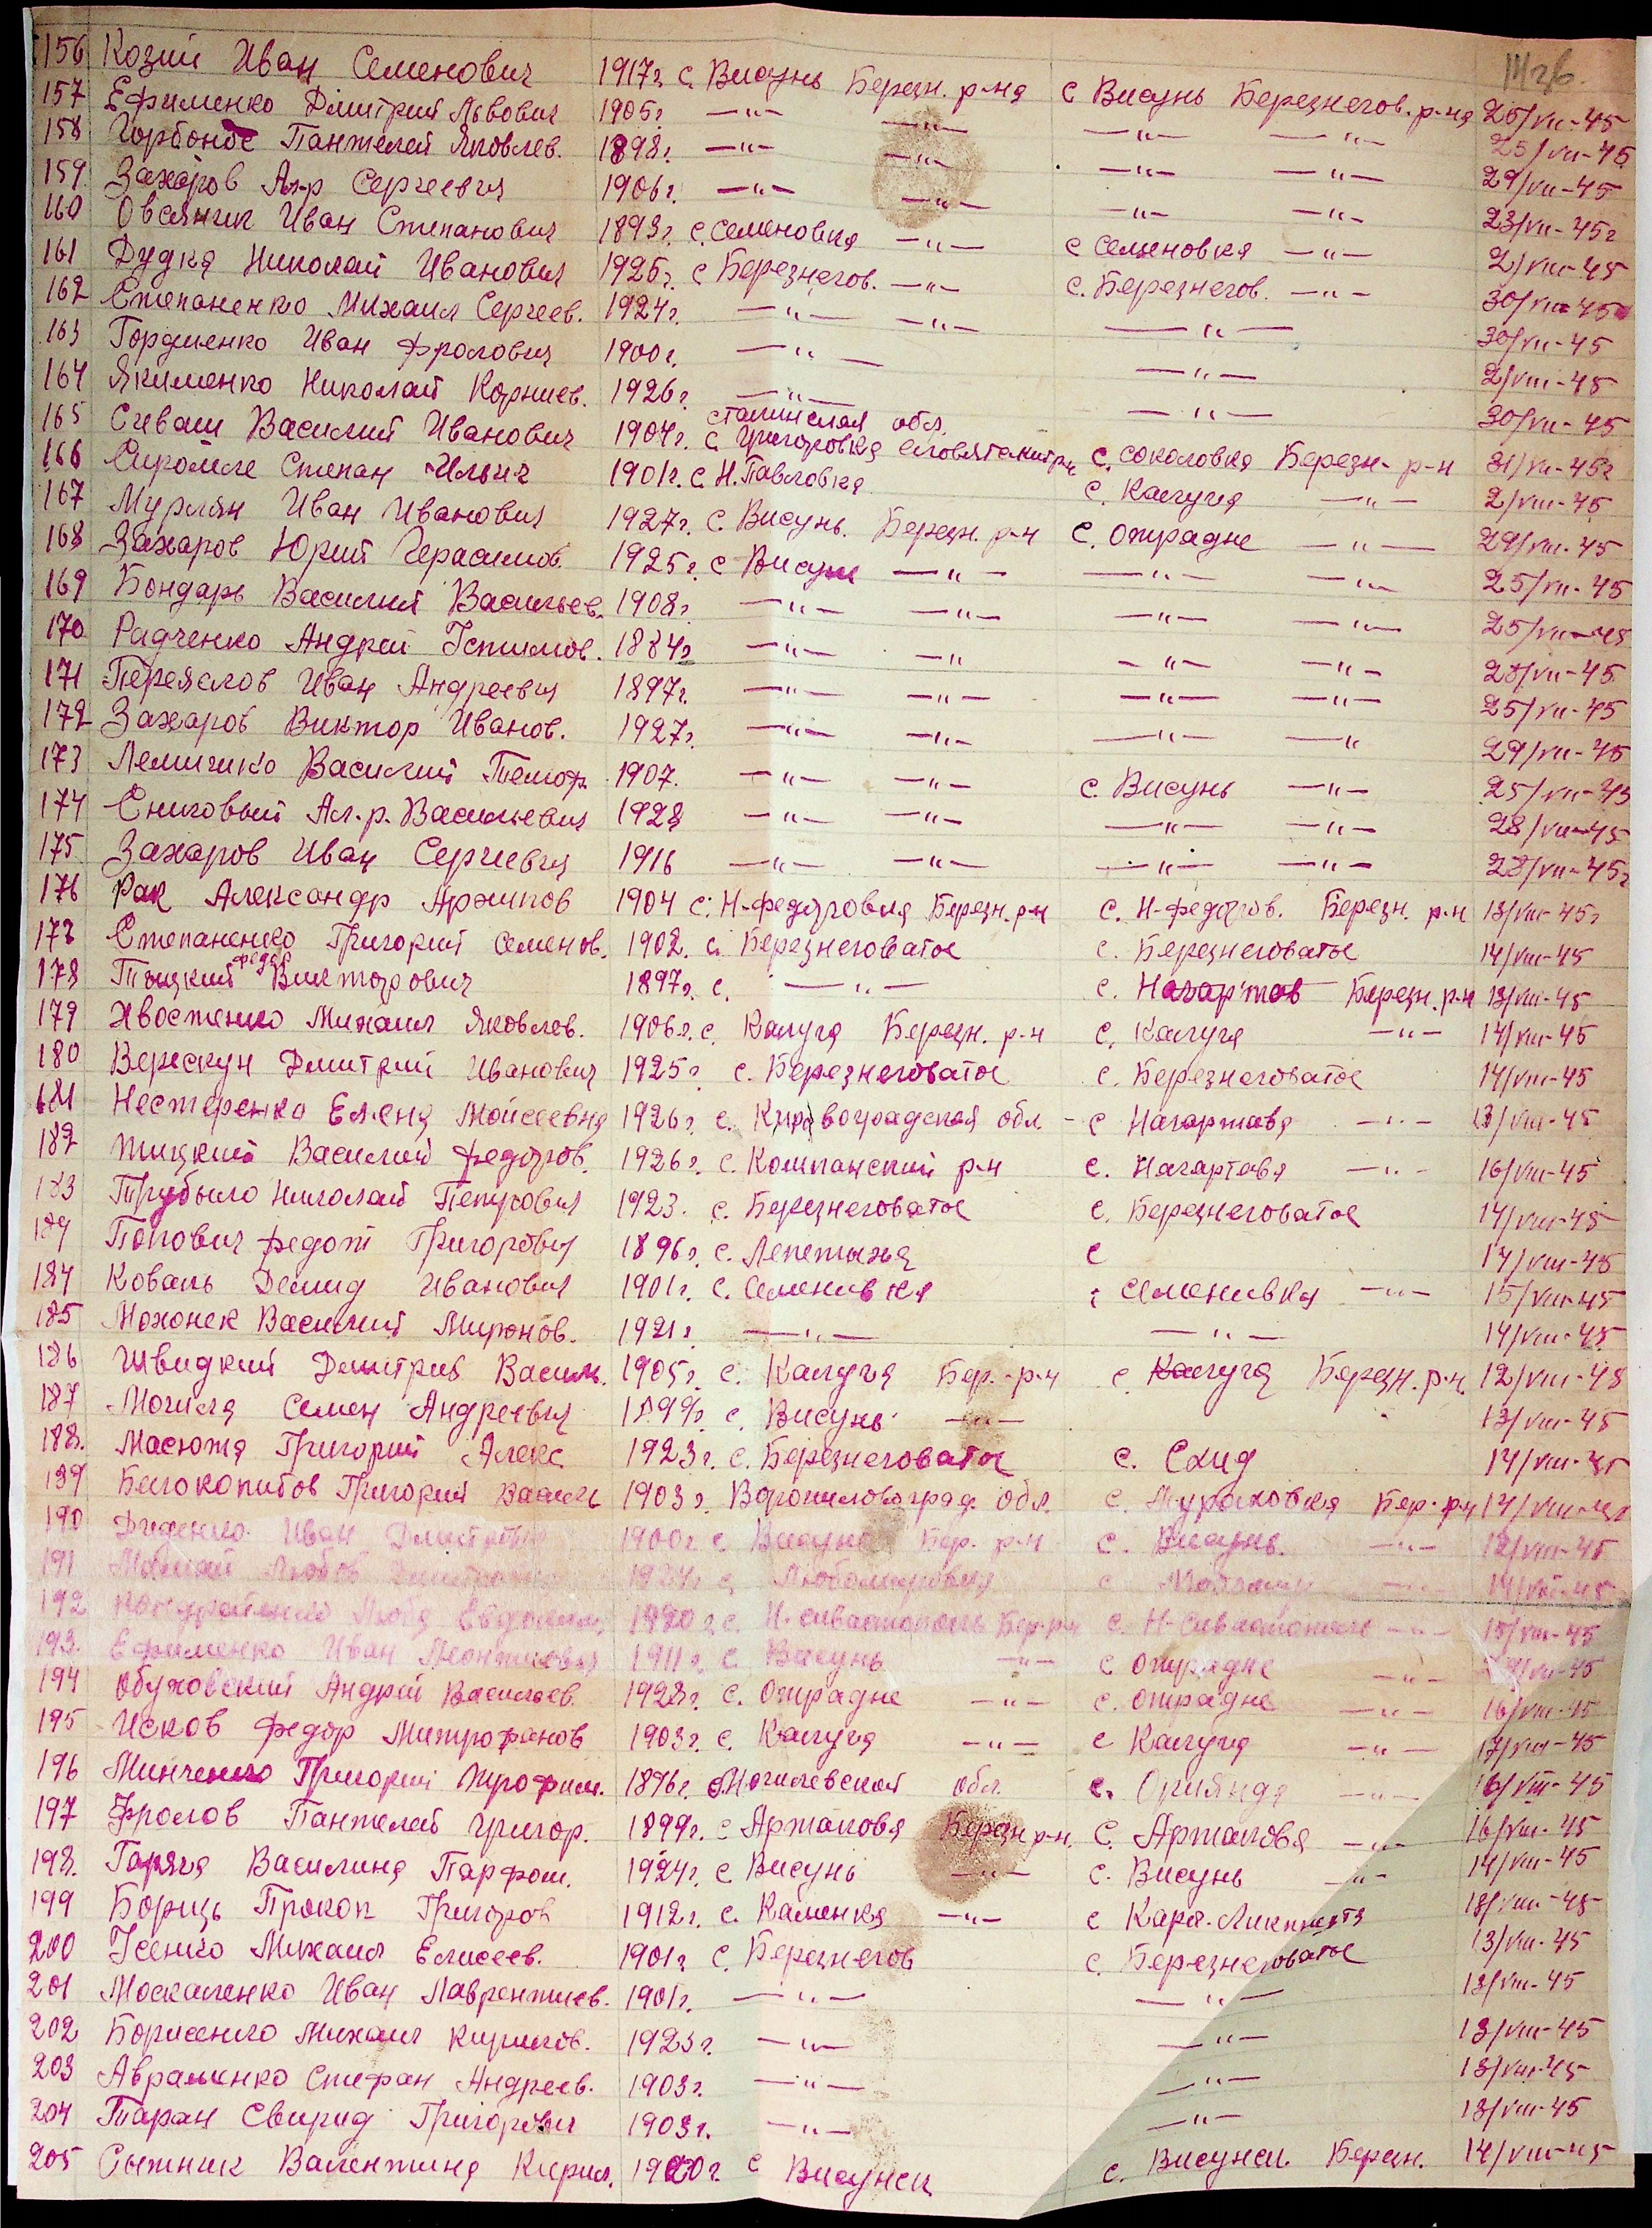 156 Козии Иван Семенович 1917г. с. Висунь Березн. р-на с Висунь Березнегов. р-на 25/VII-45
157 Ефименко Дмитрий Львович 1905г. —"— —"— —"— —"— 25/VII-45
158 Пантелей Яковлев. 1898г. —"— —"— —"— —"— 29/VII-45
159 Захаров Ал-р Сергеевич 1906г. —"— —"— —"— —"— 23/VII-45г
160 Овсяник Иван Степанович 1893г. с. Семеновка —"— с Семеновка —"— 2/VIII-45
161 Дудка Николай Иванович 1925г. с Березнегов. —"— с. Березнегов. —"— 30/VII-45
162 Степаненко Михаил Сергеев. 1924г. —"— —"— —"— 30/VII-45
163 Гордиенко Иван Фролович 1900г. —"— —"— 2/VIII-45
164 Якименко Николай Корниев. 1926г. —"— —"— 30/VII-45
165 Сиваш Василий Иванович 1904г. Сталинская обл. с. Григоровка с. Соколовка Березн. р-н 31/VII-45г
166 Степан Ильич 1901г. с. Н. Павловка с. Калуга —"— 2/VIII-45
167 Мурлян Иван Иванович 1927г. с. Висунь. Березн. р-н с. Отрадне —"— 29/VII-45
168 Захаров Юрий Герасимов. 1925г. с Висун —"— —"— —"— 25/VII-45
169 Бондарь Василий Васильев. 1908г. —"— —"— —"— —"— 25/VII-45
170 Радченко Андрей Устимов. 1884г —"— —" —"— —"— 28/VII-45
171 Переяслов Иван Андреевич 1897г. —"— —"— —"— —"— 25/VII-45
172 Захаров Виктор Иванов. 1927г. —"— —"— —"— —" 29/VII-45
173 Василий Тимоф. 1907. —"— —"— с. Висунь —"— 25/VII-45
174 Сниговый Ал-р. Васильевич 1928 —"— —"— —"— —"— 28/VII-45
175 Захаров Иван Сергеевич 1916 —"— —"— —"— —"— 28/VII-45г
176 Рак Александр Архипов 1904 с. Н-Федоровка Березн. р-н с. Н-Федоров. Березн. р-н 13/VIII-45г
177 Степаненко Григорий Семенов. 1902. с. Березнеговатое с. Березнеговатое 14/VIII-45
178 Тыцкий Федор Викторович 1897г. с. —"— с. Нагартов Березн. р-н 13/VIII-45
179 Хвостенко Михаил Яковлев. 1906г. с. Калуга Березн. р-н с. Калуга —"— 14/VIII-45
180 Верескун Дмитрий Иванович 1925г. с. Березнеговатое с. Березнеговатое 14/VIII-45
181 Нестеренко Елена Мойсеевна 1926г. с. Кировоградская обл - с Нагартава —"— 13/VIII-45
182 Тицкий Василий Федоров. 1926г. с. Компанский р-н с. Нагартава —"— 16/VIII-45
183 Николай 1923. с. Березнеговатое с. Березнеговатое 14/VIII-45
189 Попович Федот Григорович 1896г. с. Лепетыха с 14/VIII-45
184 Коваль Демид Иванович 1901г. с. Семенивка с Семенивка —"— 15/VIII-45
185 Мохонек Василий Миронов. 1921г. —"— —"— 14/VIII-45
186 Швидкий Дмитрий Василь. 1905г. с. Калуга Бер.-р-н с. Калуга Березн. р-н. 12/VIII-45
187 Могила Семен Андреевич 1899г. с. Висунь —"— 13/VIII-45
188. Масюта Григорий Алекс. 1923г. с. Березнеговатое с. Схид 14/VIII-45
189 Белокопитов Григорий 1903г. Ворошиловоград. обл. с. Мураховка Бер. р-н 14/VIII-45
190 Диденко Иван 1900г. с Висунь Бер. р-н с. Висунь. —"— 12/VIII-45
191 Любов с. с 14/VIII-45
192 Люба 1920г. с. Н-Севастополь Бер. р-н с. Н-Севастополь —"— 15/VIII-45
193. Ефименко Иван Леонтиевич 1911г. с. Висунь —"— с Отрадне —"— VII-45
194 Обуховский Андрей Васильев. 1928г. с. Отрадне —"— с. Отрадне —"— 16/VIII-45
195 Исков Федор Митрофанов 1903г. с. Калуга —"— с Калуга —"— 17/VIII-45
196 Минченко Григорий Трофим. 1896г. Могилевской обл. с. —"— 16/VIII-45
197 Фролов Пантелей Григор. 1899г. с Артаковя Березн р-н. с. Артаковя —"— 16/VIII-45
198. Василина Парфом. 1924г. с Висунь —"— с. Висунь —"— 14/VIII-45
199 Борищь Прокоп Григоров 1912г. с. Каменка —"— с Карл-Либкнехта 18/VIII-45
200 Усенко Михаил Елисеев. 1901г. с. Березнегов с. Березнеговатое 13/VIII-45
201 Москаленко Иван Лаврентиев. 1901г. —"— —"— 13/VIII-45
202 Борисенко Михаил Кирилов. 1923г. —"— —"— 13/VIII-45
203 Авраменко Стефан Андреев. 1903г. —"— —"— 13/VIII-45
204 Таран Свирид Григорович 1903г. —"— —"— 13/VIII-45
205 Сытник Валентина Кирил. 1920г. с Висунск с. Висунск. Березн. 14/VIII-45